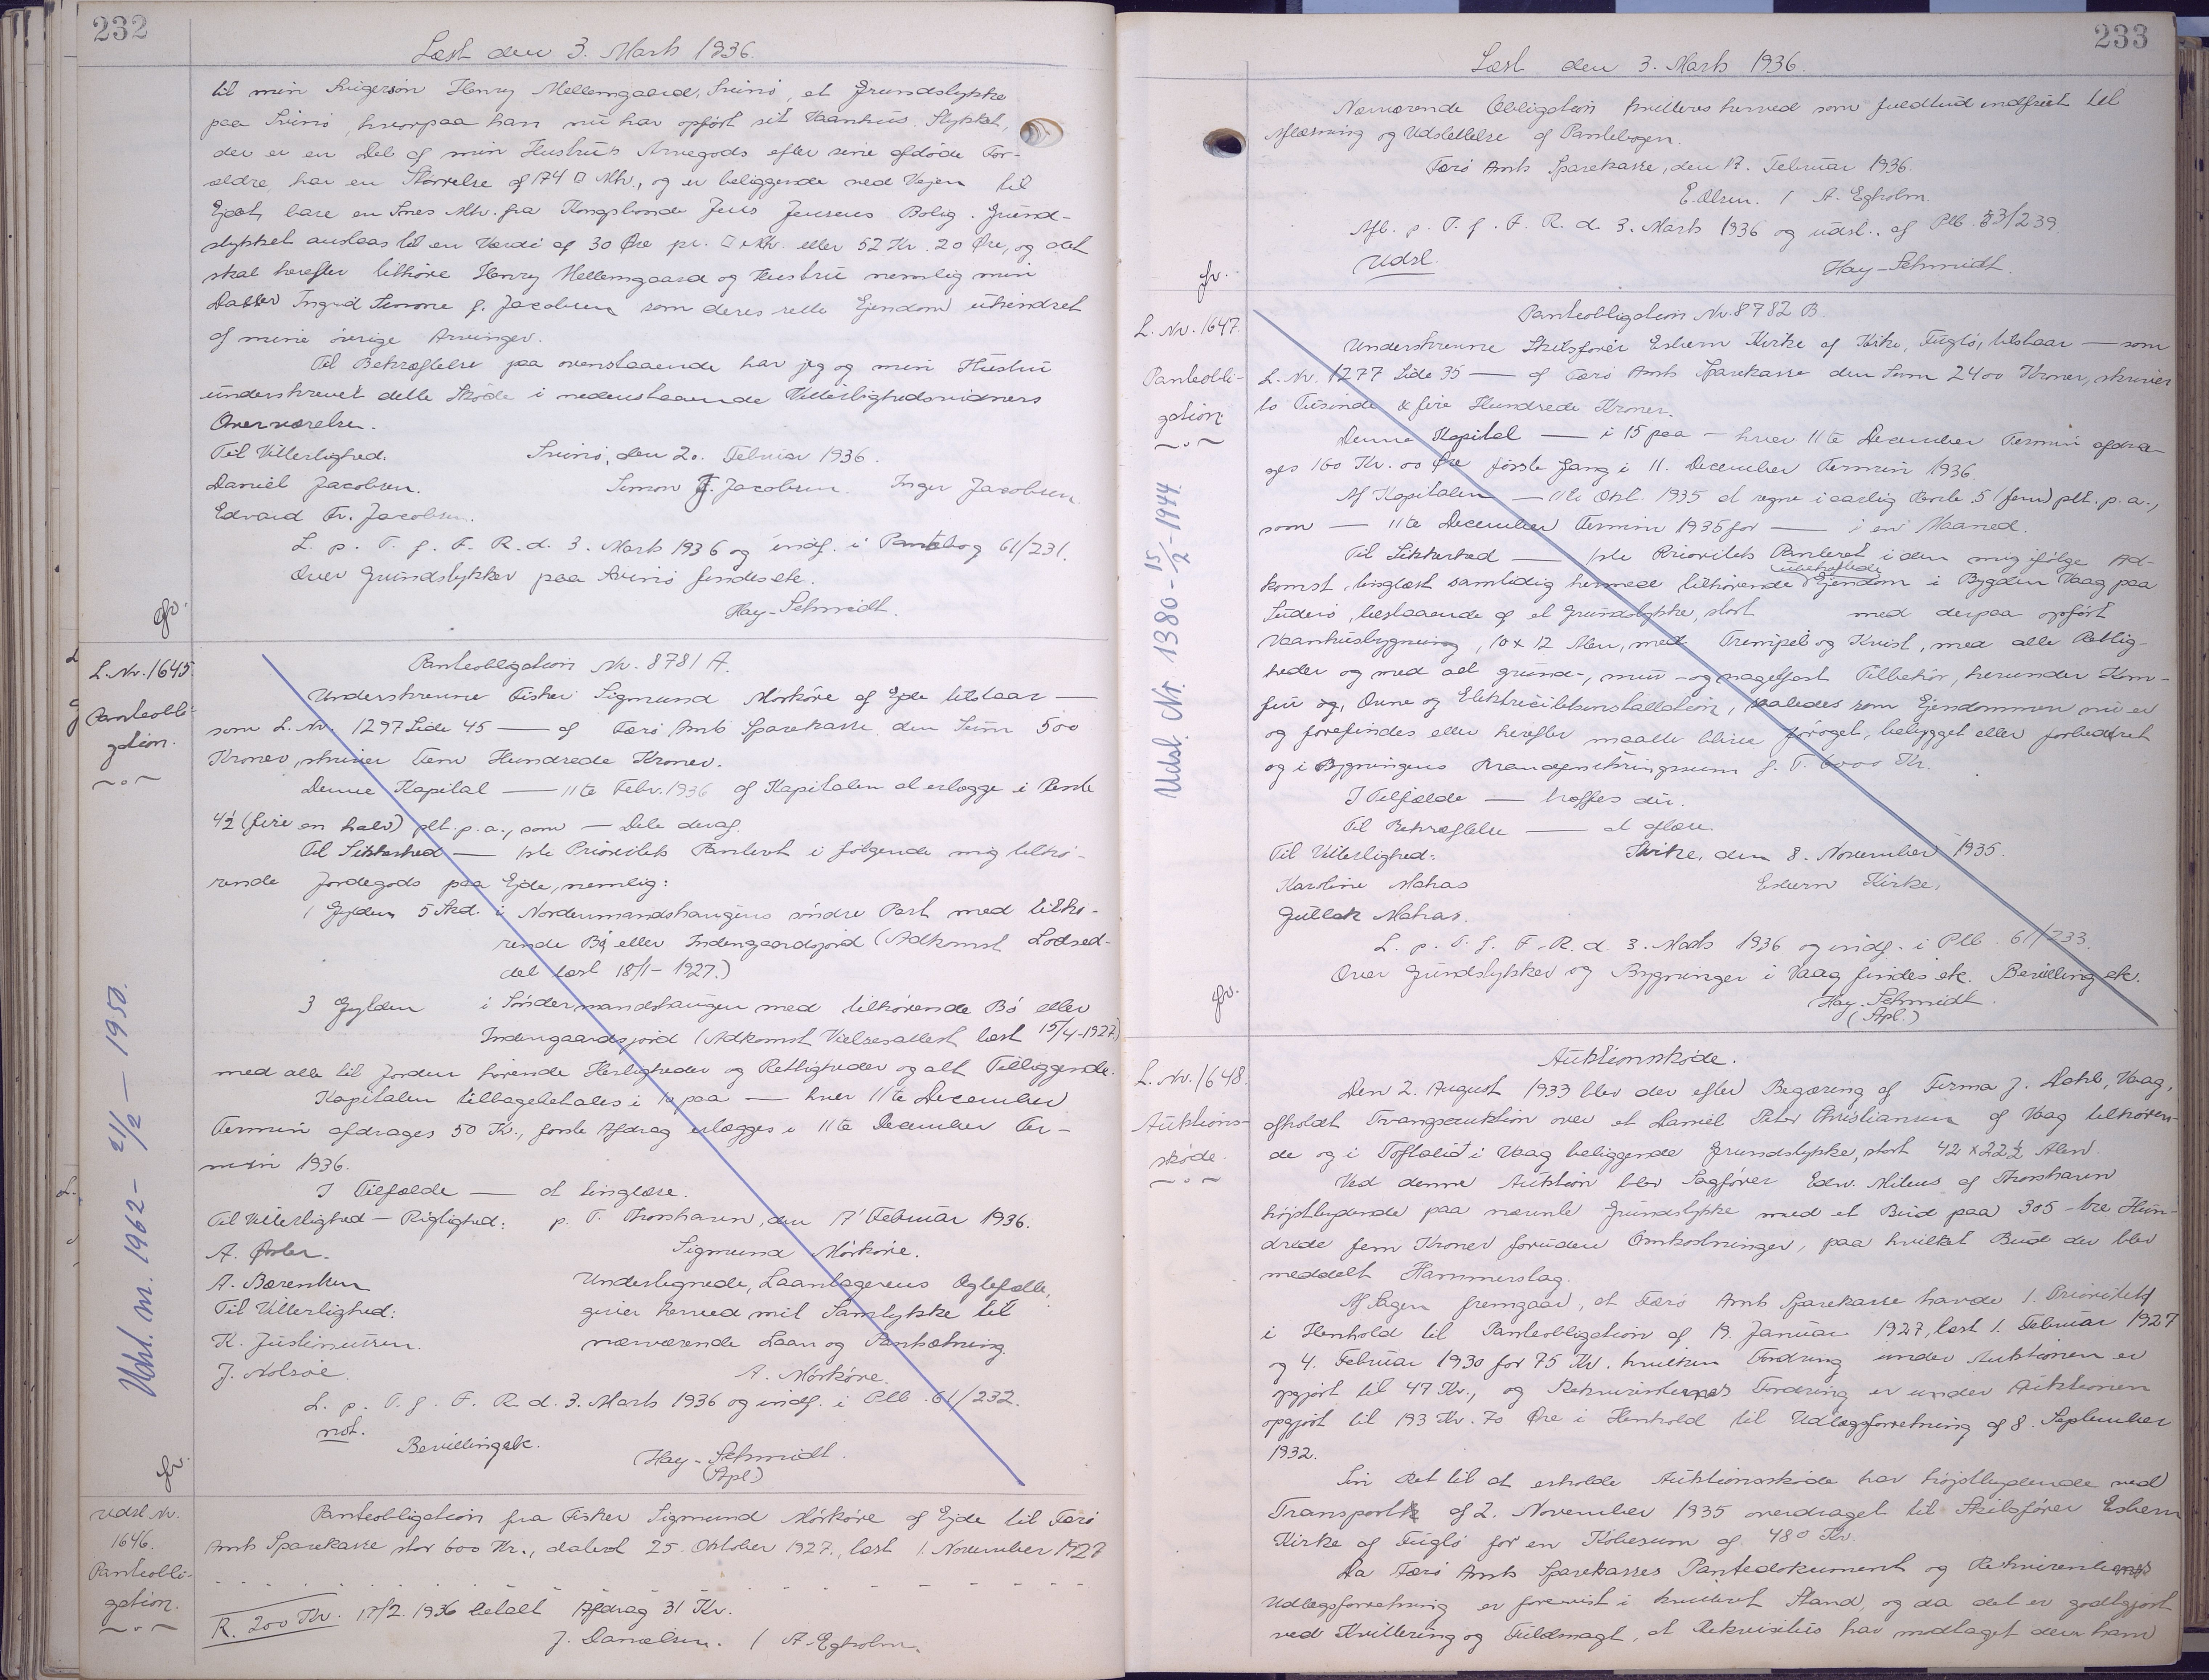 232
Læst den 3. Marts 1936.
til min Svigersøn Henry Mellemgaard, Svinø, et Grundstykke
paa Svinø, hvorpaa han nu har opført sit Vaanhus. Stykket,
der er en Del af min Hustrus Arvegods efter sine afdøde For-
ældre, har en Størrelse af 174 □ Mtr., og er beliggende ved Vejen til
Ejdet, bare en Snes Mtr. fra Kongsbonde Jens Jensens Bolig. Grund-
stykket anslaas til en Værdi af 30 Øre pr. □ Mtr. eller 52 Kr. 20 Øre, og det
skal herefter tilhøre Henry Mellemgaard og Hustru nemlig min
Datter Ingrid Simone f. Jacobsen som deres rette Ejendom uhindret
af mine øvrige Arvinger.
Til Bekræftelse paa ovenstaaende har jeg og min Hustru
underskrevet dette Skøde i nedenstaaende Vitterlighedsvidners
Overværelse.
Til Vitterlighed. Svinø, den 20. Februar 1936.
Daniel Jacobsen. Simon J. Jacobsen. Inger Jacobsen.
Edvard Fr. Jacobsen.
L. p. T. f. F. R. d. 3. Marts 1936 og indf. i Pantebog 61/231.
Over Grundstykker paa Svinø findes etc.
Hay-Schmidt.
gr.
L. Nr. 1645.
Panteobli-
gation.
Udsl. nr. 1962 - 21/2 - 1950.
Panteobligation Nr. 8781 A.
Underskrevne Fisker Sigmund Mørkøre af Ejde tilstaar —
som L. Nr. 1297 Side 45 — af Færø Amts Sparekasse den Sum 500
Kroner, skriver Fem Hundrede Kroner.
Denne Kapital — 11te Febr. 1936 af Kapitalen at erlægge i Rente
4½ (fire en halv) pct. p. a., som — Dele deraf.
Til Sikkerhed — 1ste Prioritets Panteret i følgende mig tilhø-
rende Jordegods paa Ejde, nemlig:
1 Gylden 5 Skd. i Nordenmandshaugens søndre Part med tilhø-
rende Bø eller Indengaardsjord (Adkomst Lodsed-
del læst 18/1 - 1927.)
3 Gylden i Søndermandshaugen med tilhørende Bø eller
Indengaardsjord (Adkomst Vielsesattest læst 15/4-1927.)
med alle til Jorden hørende Herligheder og Rettigheder og alt Tilliggende.
Kapitalen tilbagebetales i 10 paa — hver 11te December
Termin afdrages 50 Kr., første Afdrag erlægges i 11te December Ter-
min 1936.
I Tilfælde — at tinglæse.
Til Vitterlighed — Rigtighed: p. T. Thorshavn, den 17 Februar 1936.
A. Sigmund Mørkøre.
A. Bærentsen Undertegnede, Laantagerens Ægtefælle,
Til Vitterlighed: giver herved mit Samtykke til
K. Justinussen. nærværende Laan og Pantsætning.
J. Nolsøe. A. Mørkøre.
L. p. T. f. F. R. d. 3. Marts 1936 og indf. i Ptb. 61/232.
not.
Bevilling etc.
Hay-Schmidt.
(Spl.)
gr.
Udsl. Nr.
1646.
Panteobli-
gation.
Panteobligation fra Fisker Sigmund Mørkøre af Ejde til Færø
Amts Sparekasse stor 600 Kr., dateret 25. Oktober 1927, læst 1. November 1927
R. 200 Kr. 17/2. 1936 betalt Afdrag 31 Kr.
J. Danielsen. / A. Egholm.
233
Læst den 3. Marts 1936.
Nærværende Obligation kvitteres herved som fuldtud indfriet til
Aflæsning og Udslettelse af Pantebogen.
Færø Amts Sparekasse, den 17. Februar 1936.
E. Olsen. / A. Egholm.
Afl. p. T. f. F. R. d. 3. Marts 1936 og udsl. af Ptb. 53/239.
Udsl. Hay-Schmidt.
gr.
L. Nr. 1647.
Panteobli-
gation
Udsl. Nr. 1380 - 15/2 - 1944.
Panteobligation Nr. 8782 B.
Underskrevne Skibsfører Esbern Kirke af Kirke, Fuglø, tilstaar — som
L. Nr. 1277 Side 35 — af Færø Amts Sparekasse den Sum 2400 Kroner, skriver
to Tusinde & fire Hundrede Kroner.
Denne Kapital — i 15 paa — hver 11te December Termin afdra-
ges 160 Kr. 00 Øre første Gang i 11. December Termin 1936.
Af Kapitalen — 11te Okt. 1935 at regne i aarlig Rente 5 (fem) pct. p. a.,
som — 11te December Termin 1935 for — i en Maaned.
Til Sikkerhed — 1ste Prioritets Panteret i den mig ifølge Ad-
komst, tinglæst samtidig hermed tilhørende (ubehæftede) Ejendom i Bygden Vaag paa
Suderø, bestaaende af et Grundstykke, stort med derpaa opført
Vaanhusbygning, 10 x 12 Alen, med Trempel og Kvist, med alle Rettig-
heder og med alt grund-, mur- og nagelfast Tilbehør, herunder Kom-
fur og, Ovne og Elektricitetsinstallation, saaledes som Ejendommen nu er
og forefindes eller herefter maatte blive forøget, bebygget eller forbedret
og i Bygningens Brandforsikringssum f. T. 6000 Kr.
I Tilfælde — træffes dér.
Til Bekræftelse — at aflæse.
Til Vitterlighed: Kirke, den 8. November 1935.
Karoline Mahas Esbern Kirke.
Gullak Mahas.
L. p. T. f. F. R. d. 3. Marts 1936 og indf. i Ptb. 61/233.
Over Grundstykker og Bygninger i Vaag findes etc. Bevilling etc.
Hay-Schmidt.
(Spl.)
gr.
L. Nr. 1648.
Auktions-
skøde.
Auktionsskøde.
Den 2. August 1933 blev der efter Begæring af Firma J. Dahl, Vaag,
afholdt Tvangsauktion over et Daniel Peter Christiansen af Vaag tilhøren-
de og i Toftalid i Vaag beliggende Grundstykke, stort 42 x 22½ Alen.
Ved denne Auktion blev Sagfører Edw. Mitens af Thorshavn
højstbydende paa nævnte Grundstykke med et Bud paa 305 - tre Hun-
drede fem Kroner foruden Omkostninger, paa hvilket Bud der blev
meddelt Hammerslag.
Af Sagen fremgaar, at Færø Amts Sparekasse havde 1. Prioritet
i Henhold til Panteobligation af 19. Januar 1927, læst 1. Februar 1927
og 4. Februar 1930 for 75 Kr. hvilken Fordring under Auktionen er
opgjort til 47 Kr., og Rekvirentens Fordring er under Auktionen
opgjort til 193 Kr. 70 Øre i Henhold til Udlægsforretning af 8. September
1932.
Sin Ret til at erholde Auktionsskøde har højstbydende ved
Transport af 2. November 1935 overdraget til Skibsfører Esbern
Kirke af Fuglø for en Købesum af 480 Kr.
Da Færø Amts Sparekasses Pantedokument og Rekvirentens
Udlægsforretning er forevist i kvitteret Stand, og da det er godtgjort
ved Kvittering og Fuldmagt, at Rekvisitus har modtaget den ham